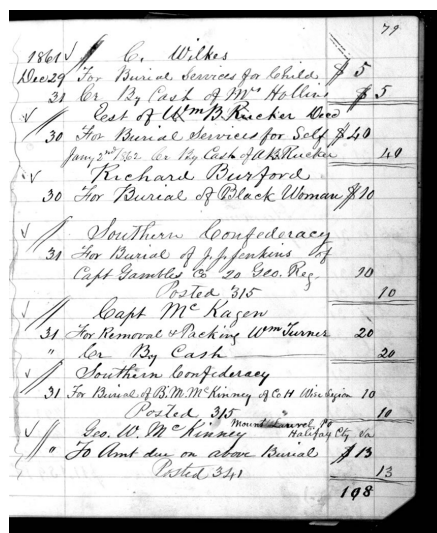 79
1861 C. Wilkes
Dec 29 For Burial Services for Child $ 5
31 Cr By Cash of Mrs Hollins $ 5
Est of Wm B. Rucker Decd
30 For Burial Services for Self $40
Jany 2nd 1862 Cr By Cash of A.B. Rucker 40
Richard Burford
30 For Burial of Black Woman $10
Southern Confederacy
31 For Burial of J. J. Jenkins of
Capt Gambles Co 20 Geo. Reg 10
Posted 315 10
Capt McKagen
31 For Removal & Packing Wm Turner 20
" Cr By Cash 20
Southern Confederacy
31 For Burial of B. M. McKinney of Co H Wise Legion 10
Posted 315 10
Mount Laurel Po
Geo. W. McKinney Halifax Cty Va
" To Amt due on above Burial $13
Posted 341 13
108